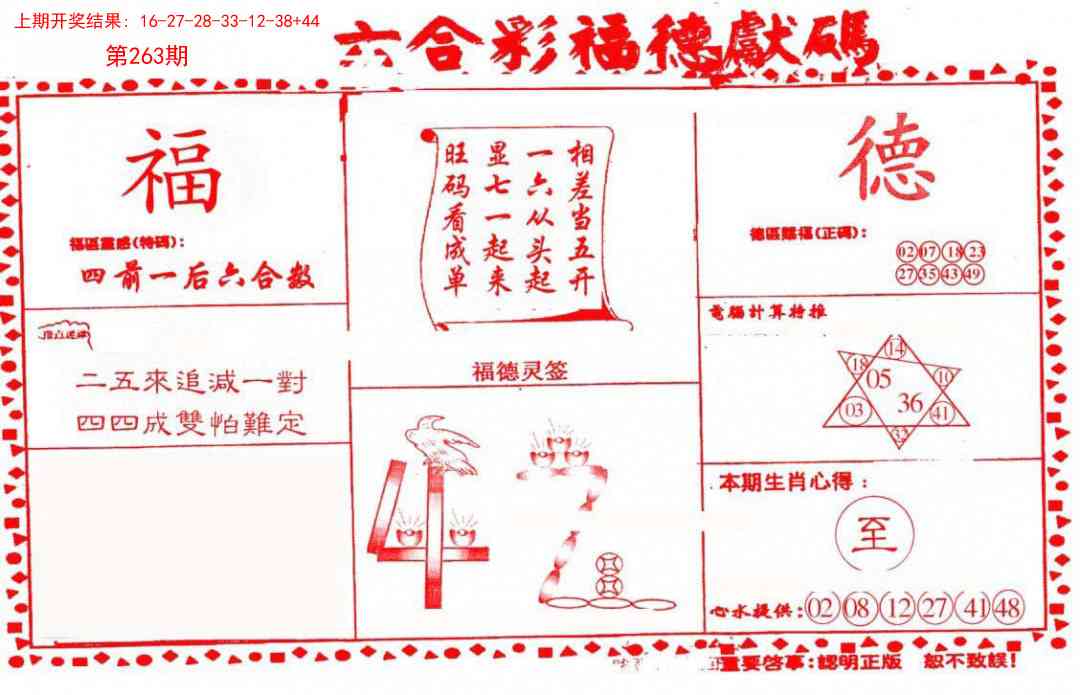 上期开奖结果: 16-27-28-33-12-38+44
第263期
六合彩福德獻碼
福
福區靈感(特碼):
四前一后六合数
二五來追減一對
四四成雙怕難定
相差当五开
一六从头起
显七一起来
旺码看成单
福德灵签
42
德
德區賜福(正碼):
02 07 18 23
27 35 43 49
電腦計算特推
14
18 10
05
36
03 41
32
本期生肖心得:
至
心水提供:02 08 12 27 41 48
重要启事:認明正版 恕不致誤!